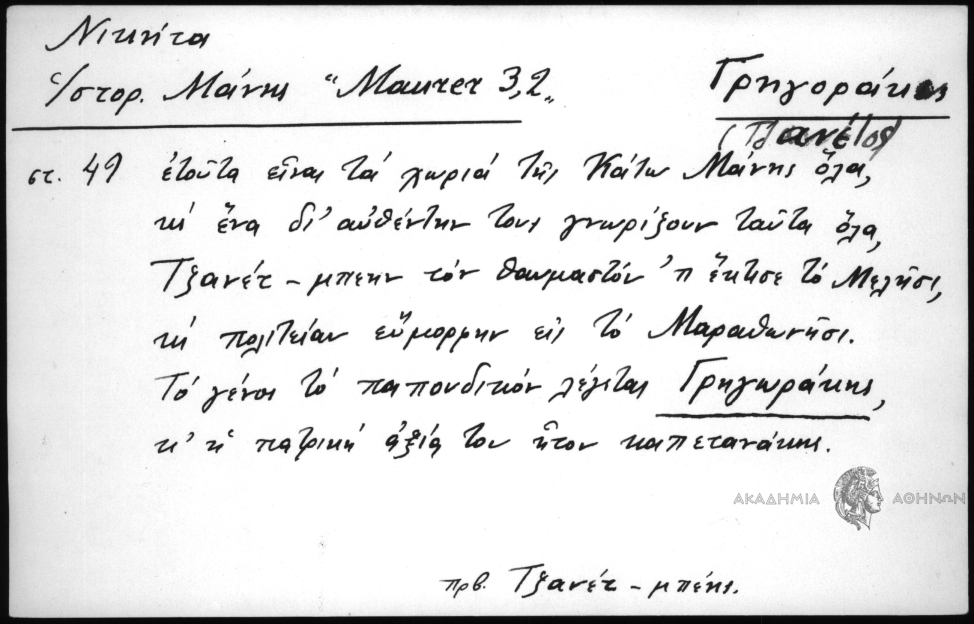 Νικήτα
ἱστορ. Μάνης "Maurer 3,2"
Γρηγοράκης
(Τζανέτος)
στ. 49 ἐτοῦτα εἶναι τά χωριά τῆς Κάτω Μάνης ὅλα,
κή ἕνα δι' αὐθέντην τους γνωρίζουν ταῦτα ὅλα,
Τζανέτ - μπεην τόν θαυμαστόν 'π ἔκτισε τό Μελῆσι,
κή πολιτείαν εὔμορφην εἰς τό Μαραθωνῆσι.
Τό γένος τό παπουδικόν λέγεται Γρηγωράκης,
κ' ἡ πατρική ἀξία του ἦτον καπετανάκης.
ΑΚΑΔΗΜΙΑ ΑΘΗΝΩΝ
πρβ. Τζανέτ - μπέης.